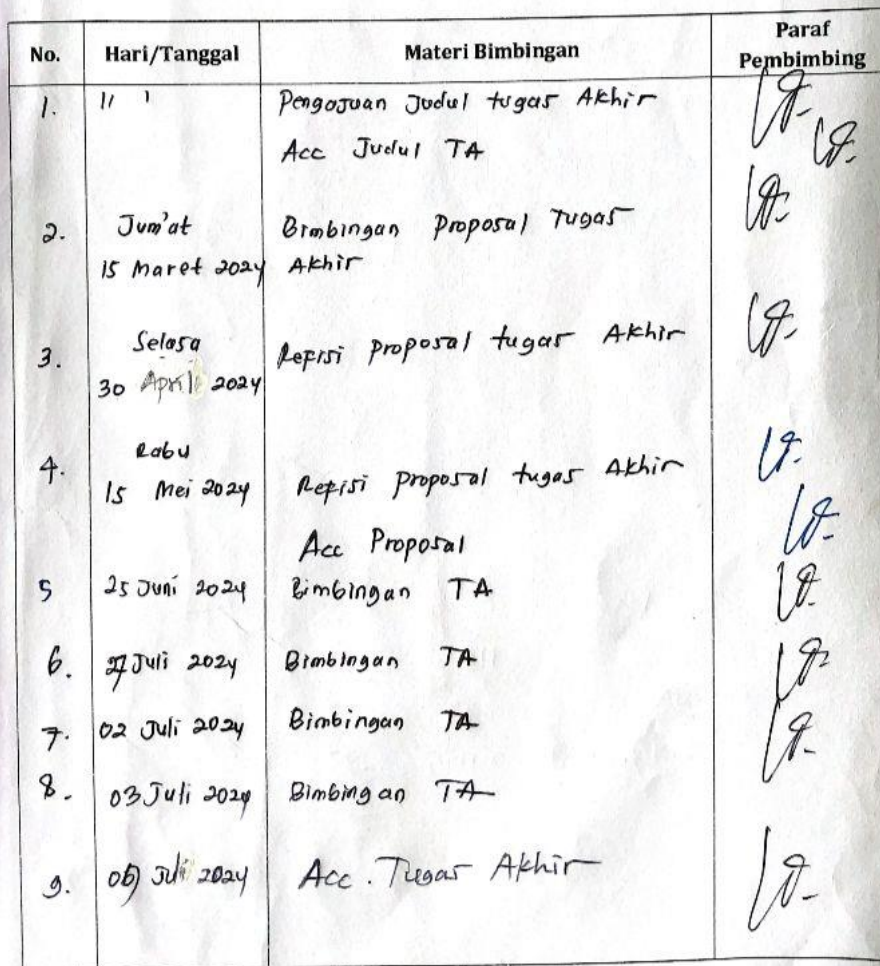 No. Hari/Tanggal Materi Bimbingan Paraf Pembimbing
1. Pengajuan Judul tugas Akhir
Acc Judul TA
2. Jum'at Bimbingan Proposal Tugas
15 Maret 2024 Akhir
3. Selasa Refisi proposal tugas Akhir
30 April 2024
4. Rabu
15 Mei 2024 Refisi proposal tugas Akhir
Acc Proposal
5 25 Juni 2024 Bimbingan TA
6. 27 Juli 2024 Bimbingan TA
7. 02 Juli 2024 Bimbingan TA
8. 03 Juli 2024 Bimbingan TA
9. Juli 2024 Acc. Tugas Akhir